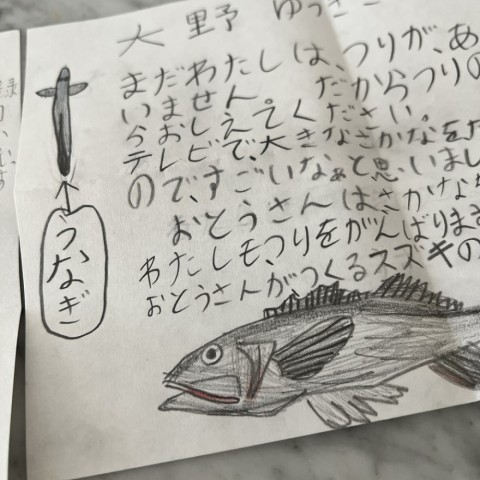 大野 ゆ
まだわたしは つりが、あ
いません。だからつりの
らおしえてください。
テレビで、大きなさかなを
ので、すごいなぁと思いまし
おとうさんはさかなが
わたしも、つりをがんばりま
おとうさんがつくるスズキの
うなぎ